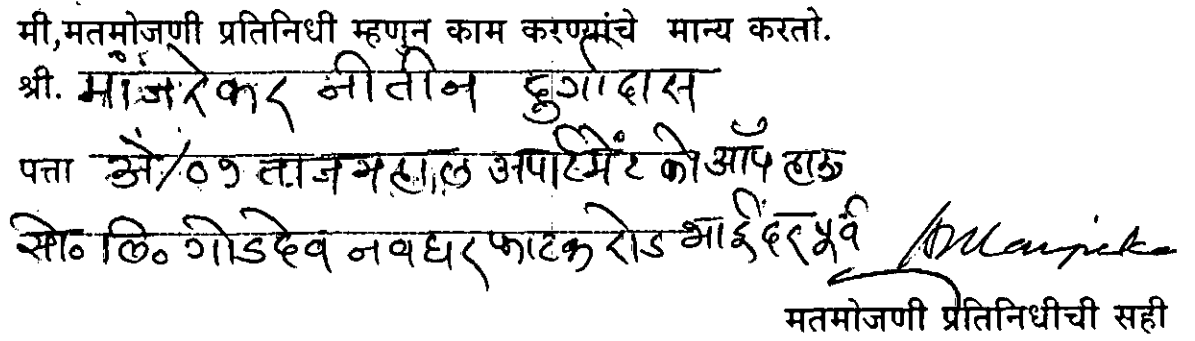 मी,मतमोजणी प्रतिनिधी म्हणुन काम करण्यांचे मान्य करतो.
श्री. मांजरेकर नीतीन दुर्गादास
पत्ता ओ/०१ ताजमहाल अपार्टमेंट को ऑप हाऊ
सो० लि० गोडदेव नवघर फाटक रोड भाईंदर पूर्व
मतमोजणी प्रतिनिधीची सही